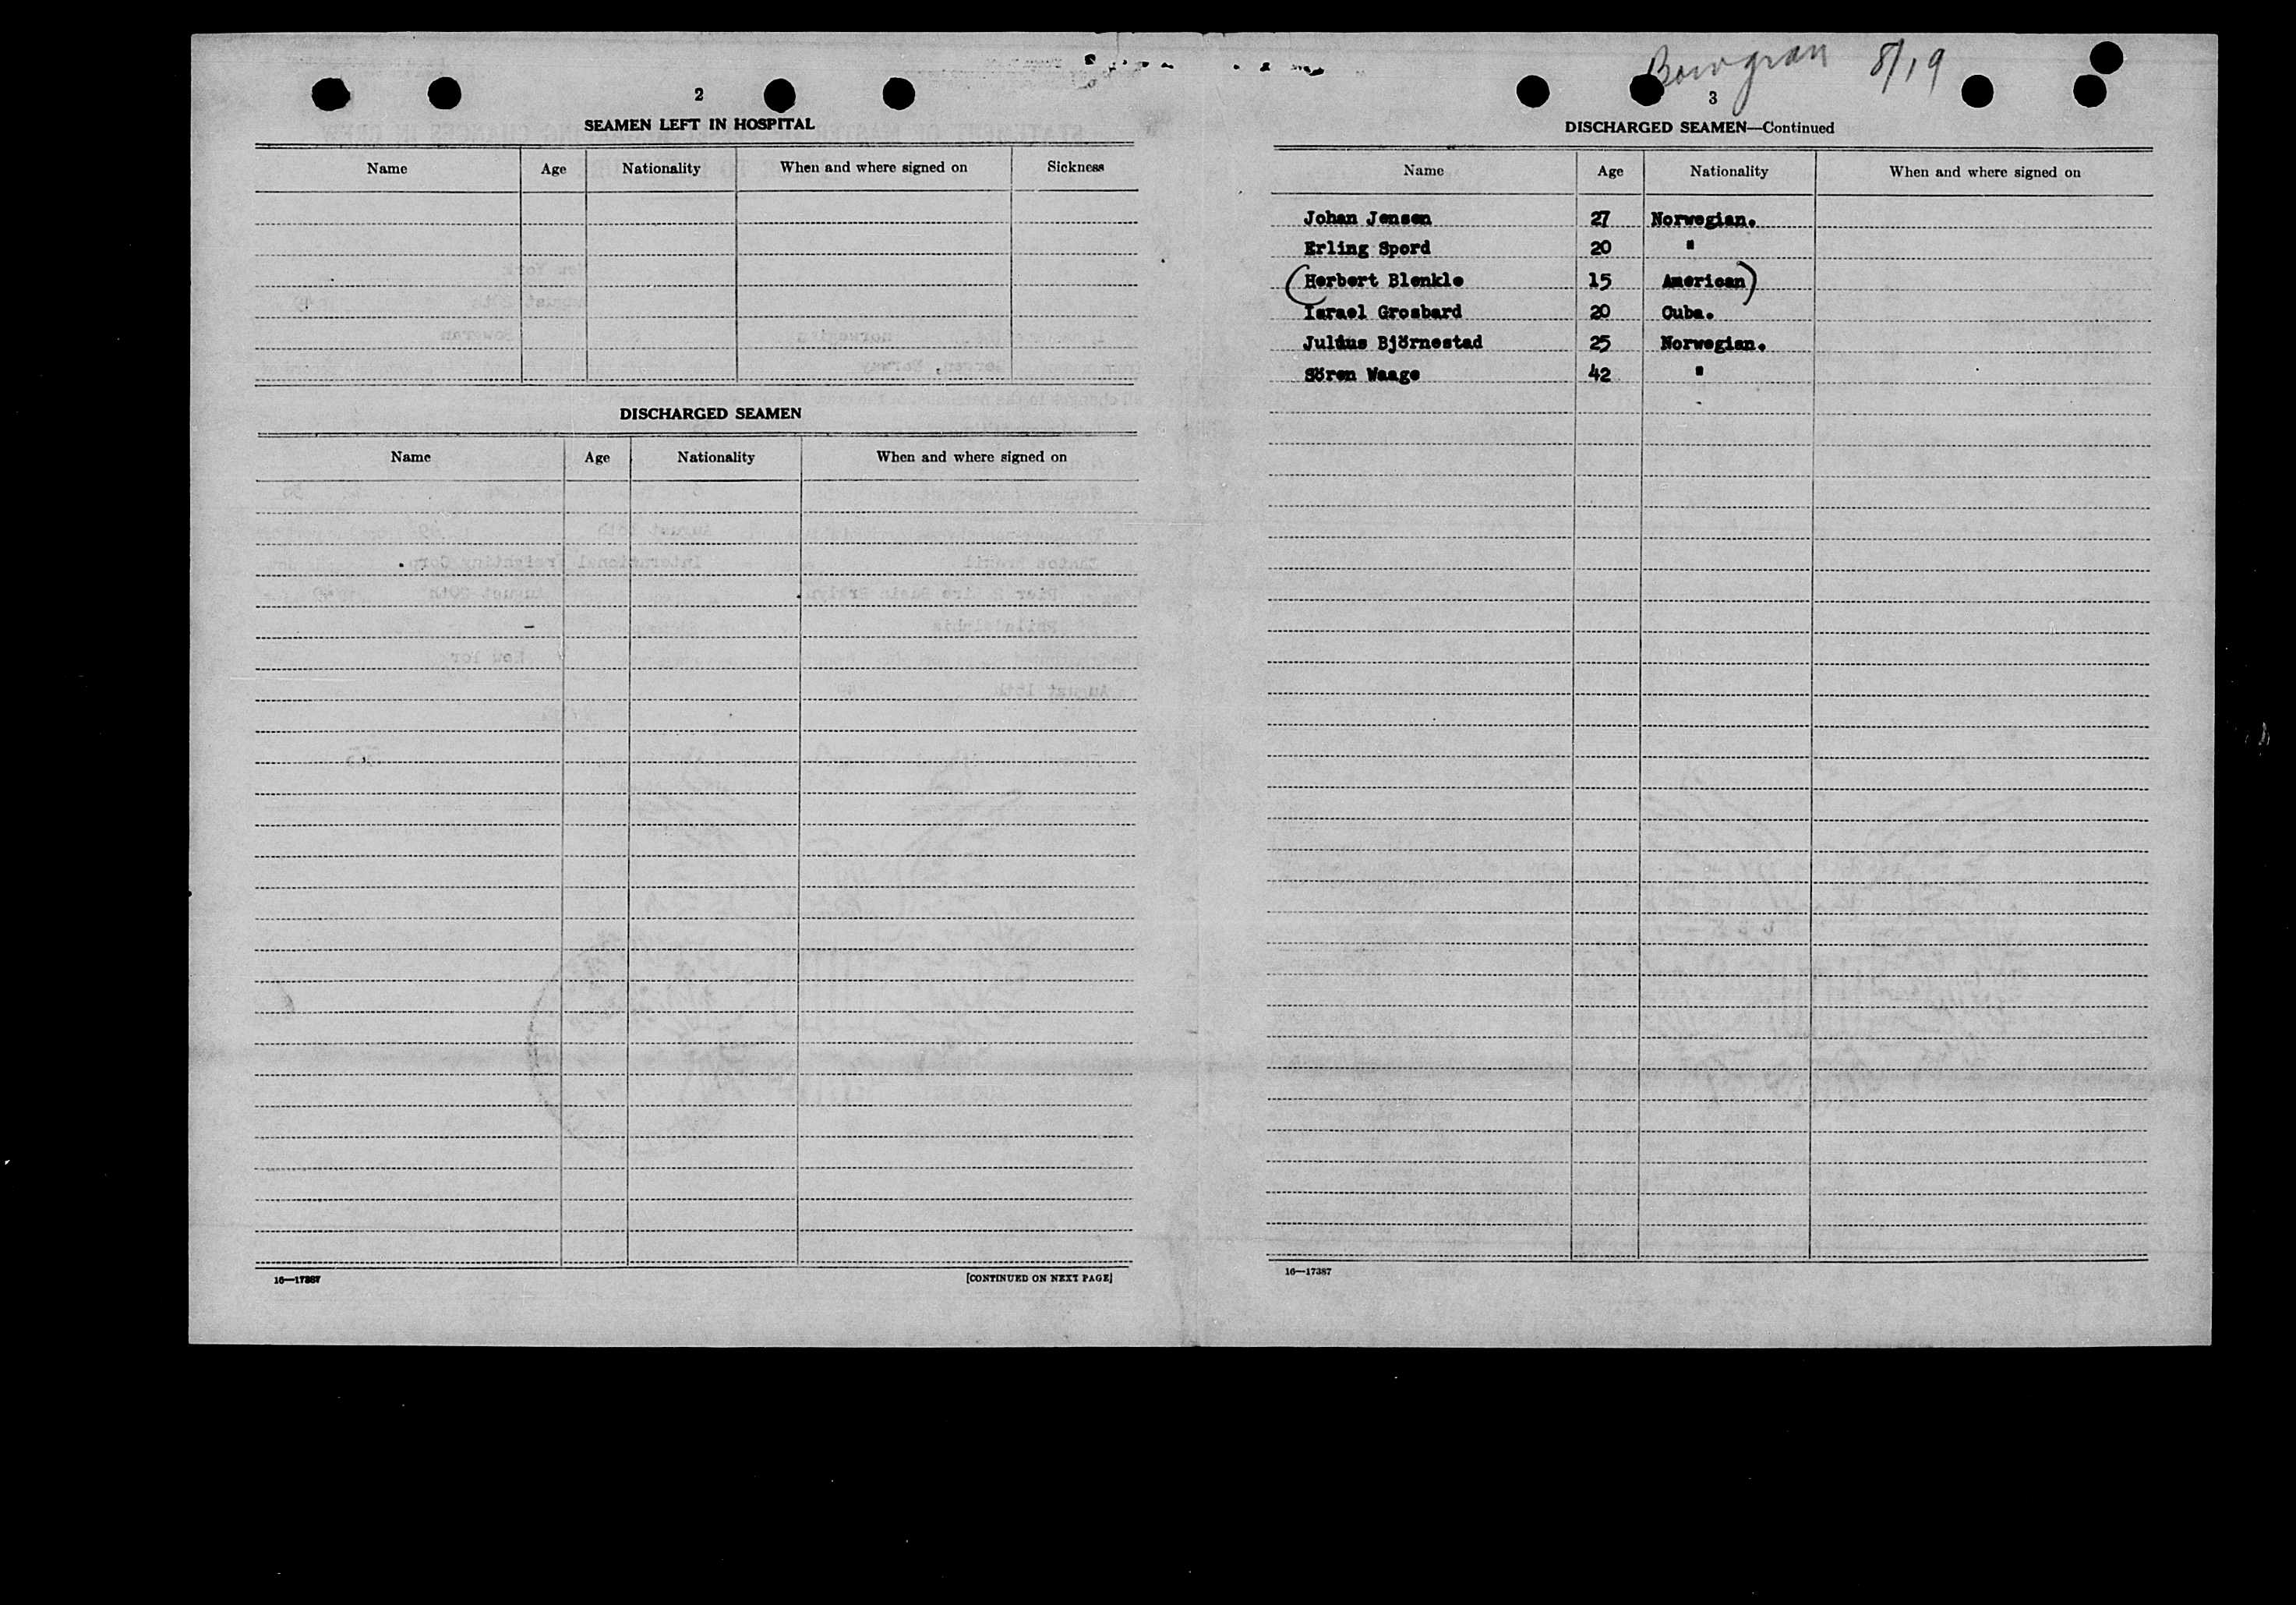 2
SEAMEN LEFT IN HOSPITAL
Name Age Nationality When and where signed on Sickness
DISCHARGED SEAMEN
Name Age Nationality When and where signed on
16—17387
[CONTINUED ON NEXT PAGE]
Bowgran 8/19
3
DISCHARGED SEAMEN—Continued
Name Age Nationality When and where signed on
Johan Jensen 27 Norwegian.
Erling Spord 20 "
(Herbert Blenkle 15 American)
Israel Grosbard 20 Cuba.
Julius Björnestad 25 Norwegian.
Sören Waage 42 "
16—17387